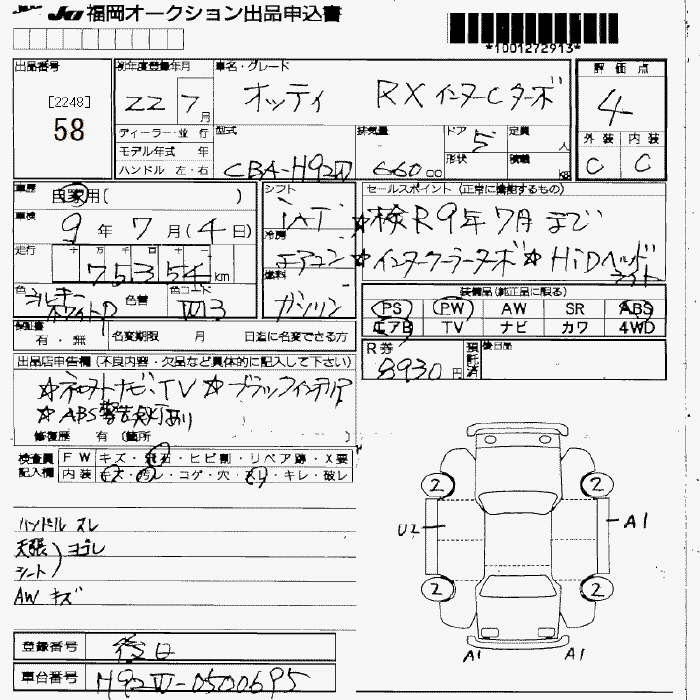 JU 福岡オークション出品申込書
*1001272913*
出品番号
[2248]
58
初年度登録年月
22 7月
車名・グレード
オッティ RX インタークーターボ
評価点
4
ディーラー・並行
モデル年式 年
ハンドル 左・右
型式
CBA-H92W
排気量
660 cc
ドア 5
形状
定員 人
積載 kg
外装 内装
C C
車歴 自家用( )
車検
9年 7月(4日)
走行 十万千百十
75354 km
色
シルキーホワイトP
色替
色コード
W13
シフト
IAT
冷房
エアコン
燃料
ガソリン
セールスポイント(正常に機能するもの)
☆検R9年7月まで
☆インタークーラーターボ☆HiDヘッドライト
装備品(純正品に限る)
PS PW AW SR ABS
エアB TV ナビ カワ 4WD
保証書
有・無
名変期限 月 日迄に名変できる方
R券
8930円
預託済
後日品
出品店申告欄(不良内容・欠品など具体的に記入して下さい)
☆ネロストナビ、TV☆ブラックインテリア
☆ABS警告灯あり
修復歴 有(箇所 )
検査員記入欄
FW キズ・飛石・ヒビ割・リペア跡・X要
内装 キズ・汚レ・コゲ・穴・スリ・キレ・破レ
ハンドル スレ
天張 シート ヨゴレ
AW キズ
2 2
U2 A1
2 2
A1 A1
登録番号 後日
車台番号 H92W-0500695